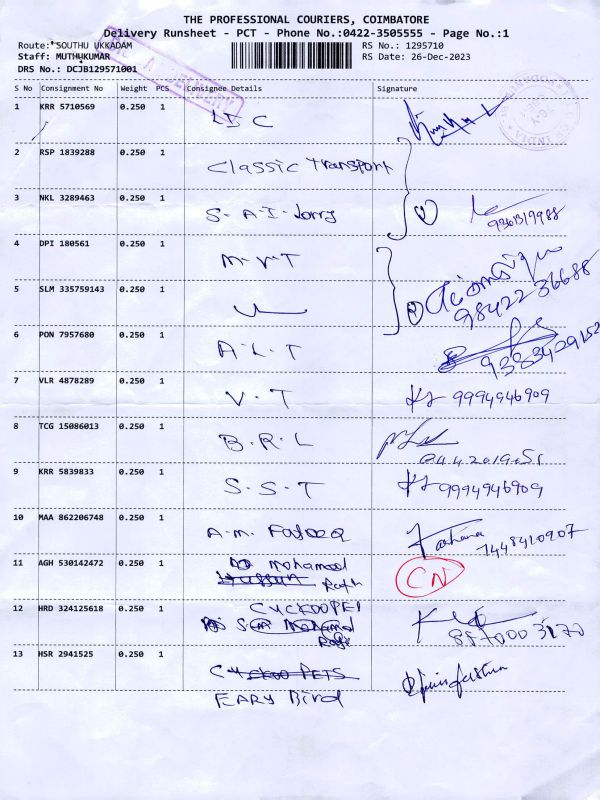 THE PROFESSIONAL COURIERS, COIMBATORE
Delivery Runsheet - PCT - Phone No.:0422-3505555 - Page No.:1
Route: SOUTHU UKKADAM RS No.: 1295710
Staff: MUTHUKUMAR RS Date: 26-Dec-2023
DRS No.: DCJB129571001
S No Consignment No Weight PCS Consignee Details Signature
1 KRR 5710569 0.250 1
2 RSP 1839288 0.250 1 Classic Transport
3 NKL 3289463 0.250 1 S-A-I-Lorry
4 DPI 180561 0.250 1 M-V-T
5 SLM 335759143 0.250 1
9842236688
6 PON 7957680 0.250 1 A-L-T
7 VLR 4878289 0.250 1 V-T 9994946909
8 TCG 15086013 0.250 1 B-R-L
9 KRR 5839833 0.250 1 S-S-T 9994946909
10 MAA 862206748 0.250 1 A-M-
7448410907
11 AGH 530142472 0.250 1 Mohamed
CN
12 HRD 324125618 0.250 1 CUCKOO PET
13 HSR 2941525 0.250 1 CUCKOO PETS
EARY Bird